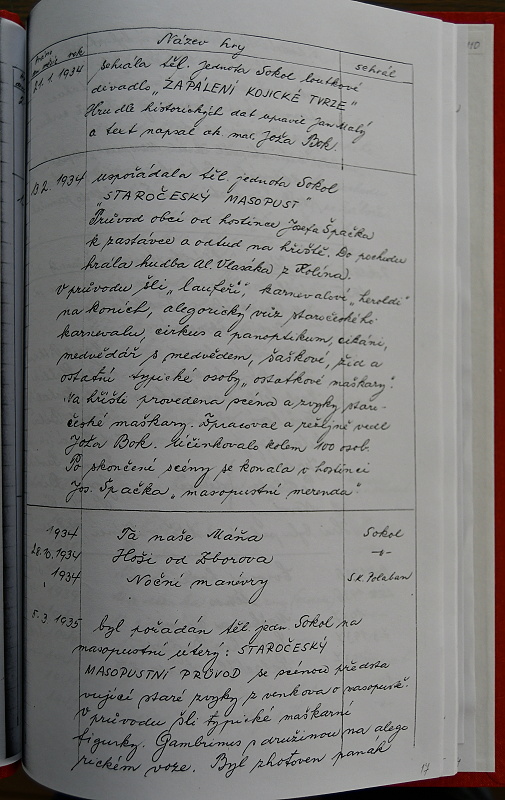 Název hry
sehrál
rok
21.1.1934 sehrála těl. jednota Sokol loutkové
divadlo „ZAPÁLENÍ KOJICKÉ TVRZE"
Hru dle historických dat upravil Jan Malý
a text napsal ak. mal. Joža Bok.
13.2. 1934 uspořádala těl. jednota Sokol
„STAROČESKÝ MASOPUST"
Průvod obcí od hostince Josefa Špačka
k zastávce a odtud na hřiště. Do pochodu
hrála hudba Al. Vlasáka z Kolína.
V průvodu šli „laufeři", karnevaloví „heroldi"
na koních, alegorický vůz staročeského
karnevalu, cirkus a panoptikum, cikáni,
medvědář s medvědem, šaškové, žid a
ostatní typické osoby „ostatkové maškary".
Na hřišti provedena scéna a zvyky staro-
české maškary. Zpracoval a režijně vedl
Joža Bok. Účinkovalo kolem 100 osob.
Po skončení scény se konala v hostinci
Jos. Špačka „masopustní merenda".
1934 Ta naše Máňa Sokol
28.10.1934 Hoši od Zborova -"-
1934 Noční manévry S.K. Polaban
5.3. 1935 byl pořádán těl. jedn. Sokol na
masopustní úterý: STAROČESKÝ
MASOPUSTNÍ PRŮVOD se scénou předsta
vující staré zvyky z venkova o masopustě.
V průvodu šli typické maškarní
figurky. Gambrinus s družinou na alego
rickém voze. Byl zhotoven panák
17